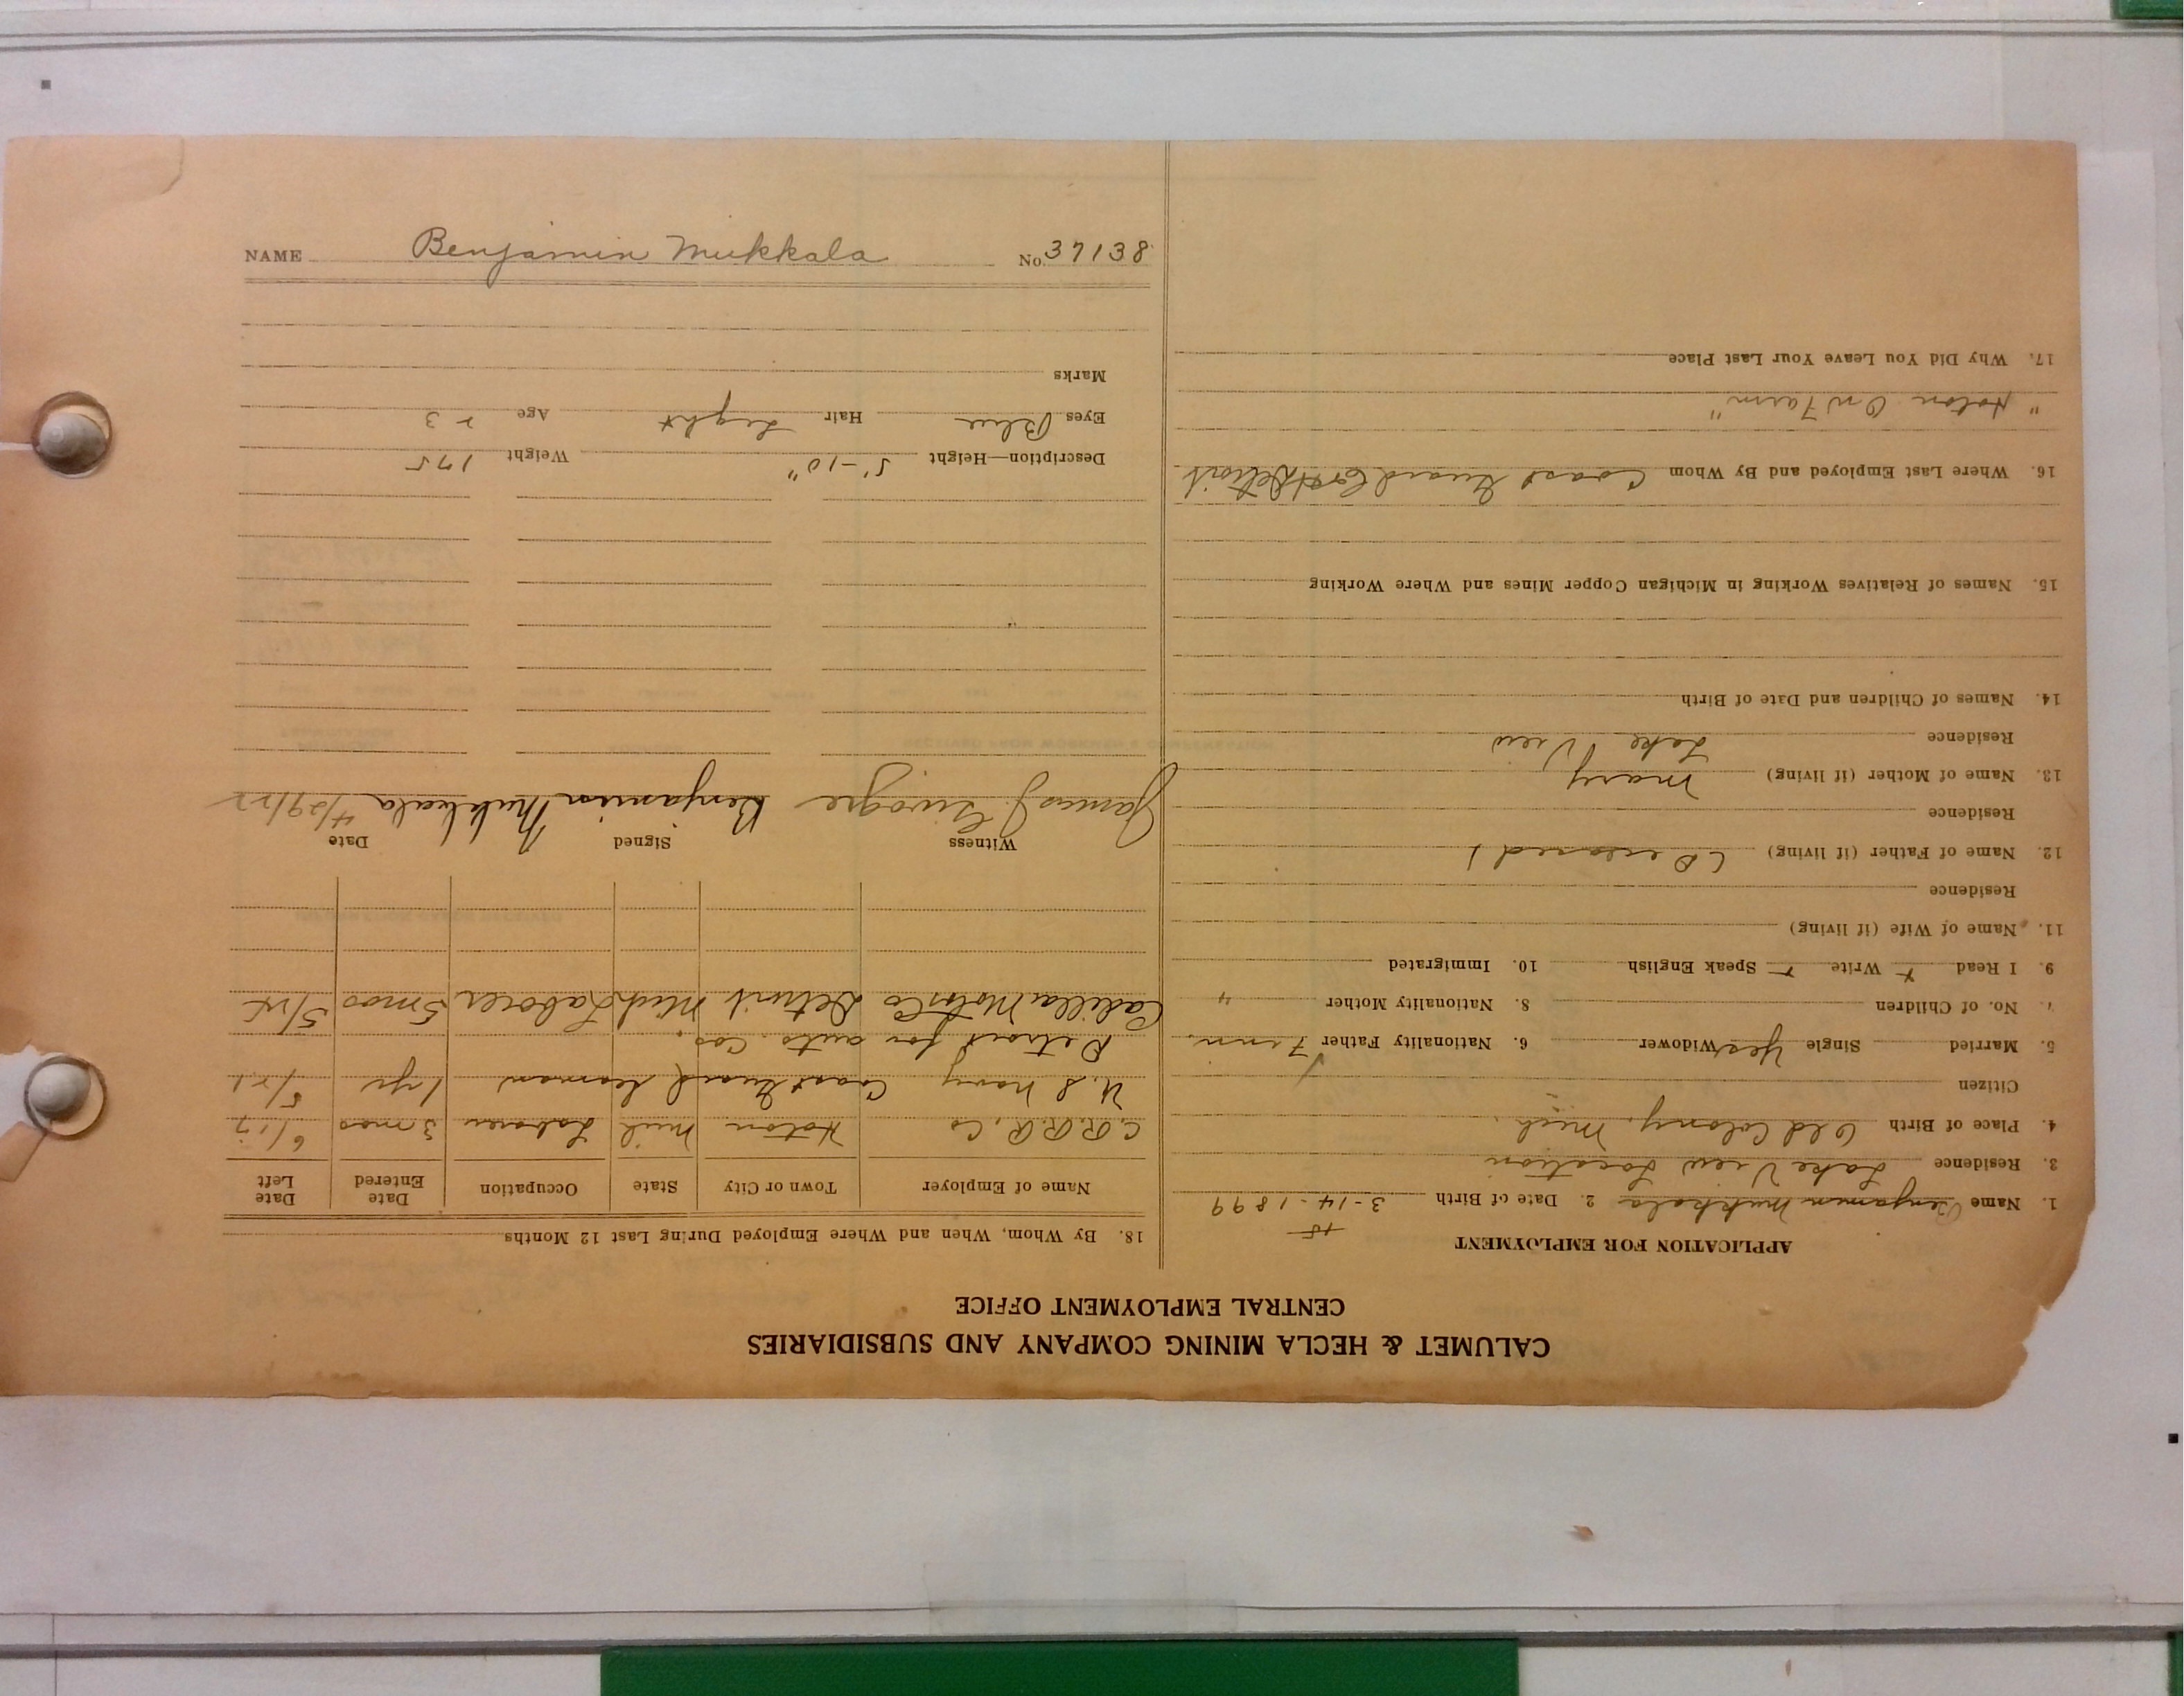 CALUMET & HECLA MINING COMPANY AND SUBSIDIARIES
CENTRAL EMPLOYMENT OFFICE
APPLICATION FOR EMPLOYMENT
1. Name Benjamin Mukkala 2. Date of Birth 3-14-1899
3. Residence Lake View Location
4. Place of Birth Old Colony, Mich.
Citizen
5. Married Single Yes Widower 6. Nationality Father Finn
7. No. of Children 8. Nationality Mother "
9. I Read Write Speak English 10. Immigrated
11. Name of Wife (if living)
Residence
12. Name of Father (if living) (Deceased)
Residence
13. Name of Mother (if living) Mary
Residence Lake View
14. Names of Children and Date of Birth
15. Names of Relatives Working in Michigan Copper Mines and Where Working
16. Where Last Employed and By Whom Coast Guard Detroit
"Hoton On Farm"
17. Why Did You Leave Your Last Place
18. By Whom, When and Where Employed During Last 12 Months
Name of Employer Town or City State Occupation Date Entered Date Left
C.R.R.R. Co Hoton Mich Laborer 3 mos 6/17
U.S Navy Coast Guard Seaman 1 yr 5/21
Detroit for auto. Cos.
Cadilla Motor Co Detroit Mich Laborer 5 mos
Witness Signed Date
James J. Benjamin Mukkala 4/29/22
Description—Height 5'-10" Weight 175
Eyes Blue Hair Light Age 23
Marks
NAME Benjamin Mukkala No. 37138